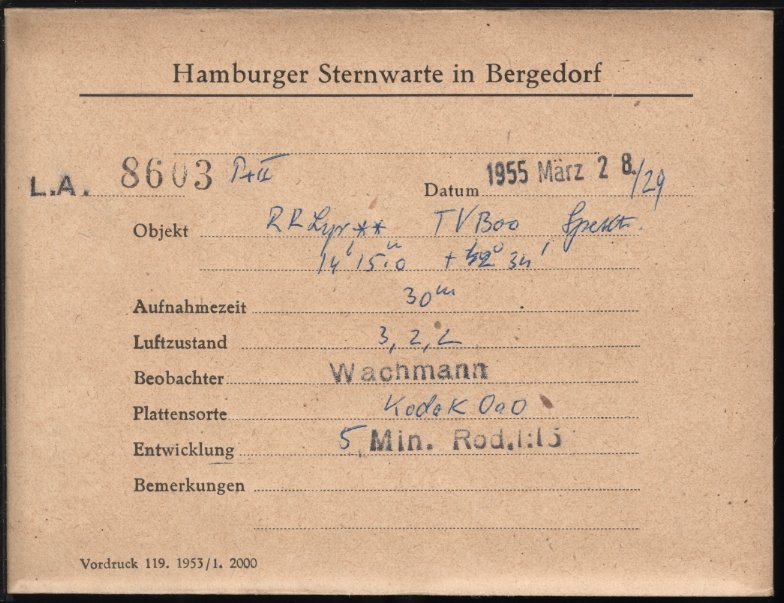 Hamburger Sternwarte in Bergedorf
L.A. 8603 P+II
Datum 1955 März 2 8./29
Objekt RR Lyr ** TV Boo Spektr.
14h 15m.0 + 42° 34'
Aufnahmezeit 30m
Luftzustand 3, 2, 2
Beobachter Wachmann
Plattensorte Kodak OaO
Entwicklung 5 Min. Rod.1:15
Bemerkungen
Vordruck 119. 1953/1. 2000